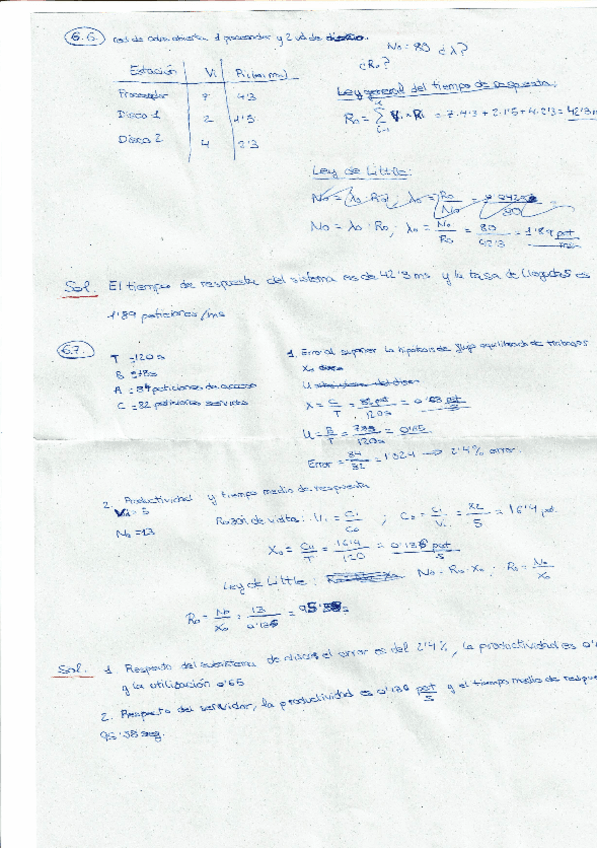 6.6. red de colas abiertas 1 procesador y 2 uds de disco.
N₀ = 80 ¿λ?
¿R₀?
Estación Vi Ri (en ms)
Procesador 7 4'3
Disco 1 2 1'5
Disco 2 4 2'3
Ley general del tiempo de respuesta:
R₀ = Σ Vi · Ri = 7·4'3 + 2·1'5 + 4·2'3 = 42'3 ms
Ley de Little:
N₀ = λ₀ · R₀; λ₀ = N₀/R₀ = 80/42'3 = 1'89 pet/ms
Sol. El tiempo de respuesta del sistema es de 42'3 ms y la tasa de llegadas es
1'89 peticiones/ms
6.7.
T = 120 s
B = 78 s
A = 84 peticiones de acceso
C = 82 peticiones servidas
1. Error al suponer la hipótesis de flujo equilibrado de trabajos
X = C/T = 82 pet/120 s = 0'68 pet/s
U = B/T = 78 s/120 s = 0'65
Error = 84/82 = 1'024 → 2'4% error.
2. Productividad y tiempo medio de respuesta
Vi = 5
N₀ = 13
Razón de visita: Vi = Ci/C₀ ; C₀ = Ci/Vi = 82/5 = 16'4 pet.
X₀ = C₀/T = 16'4/120 = 0'136 pet/s
Ley de Little: N₀ = R₀ · X₀ ; R₀ = N₀/X₀
R₀ = N₀/X₀ = 13/0'136 = 95'58 s
Sol. 1. Respecto del subsistema de discos el error es del 2'4%, la productividad es 0'
y la utilización 0'65
2. Respecto del servidor, la productividad es 0'136 pet/s y el tiempo medio de respue
95'58 seg.